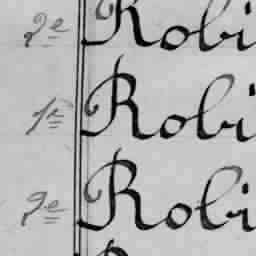 2e Robi
1e Robi
2e Robi